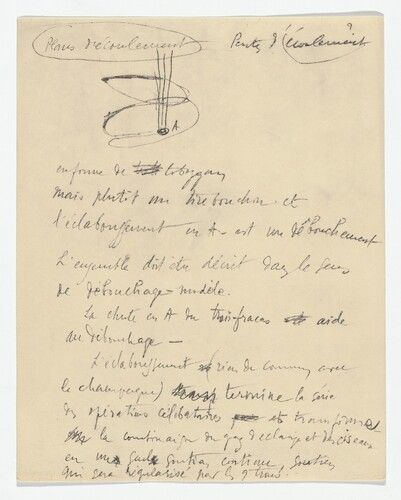 Plans d'écoulement Pentes d'écoulement
A
en forme de toboggan
mais plutôt un tirebouchon. et
l'éclaboussement en A. est un débouchement
L'ensemble doit être décrit dans le sens
de débouchage modèle.
La chute en A du trois-fracas aide
au débouchage —
L'éclaboussement (rien de commun avec
le champagne) termine la série
des opérations célibataires et transforme
la combinaison du gaz d'éclairage et des ciseaux
en une seule continue,
qui sera régularisé par les 9 trous.